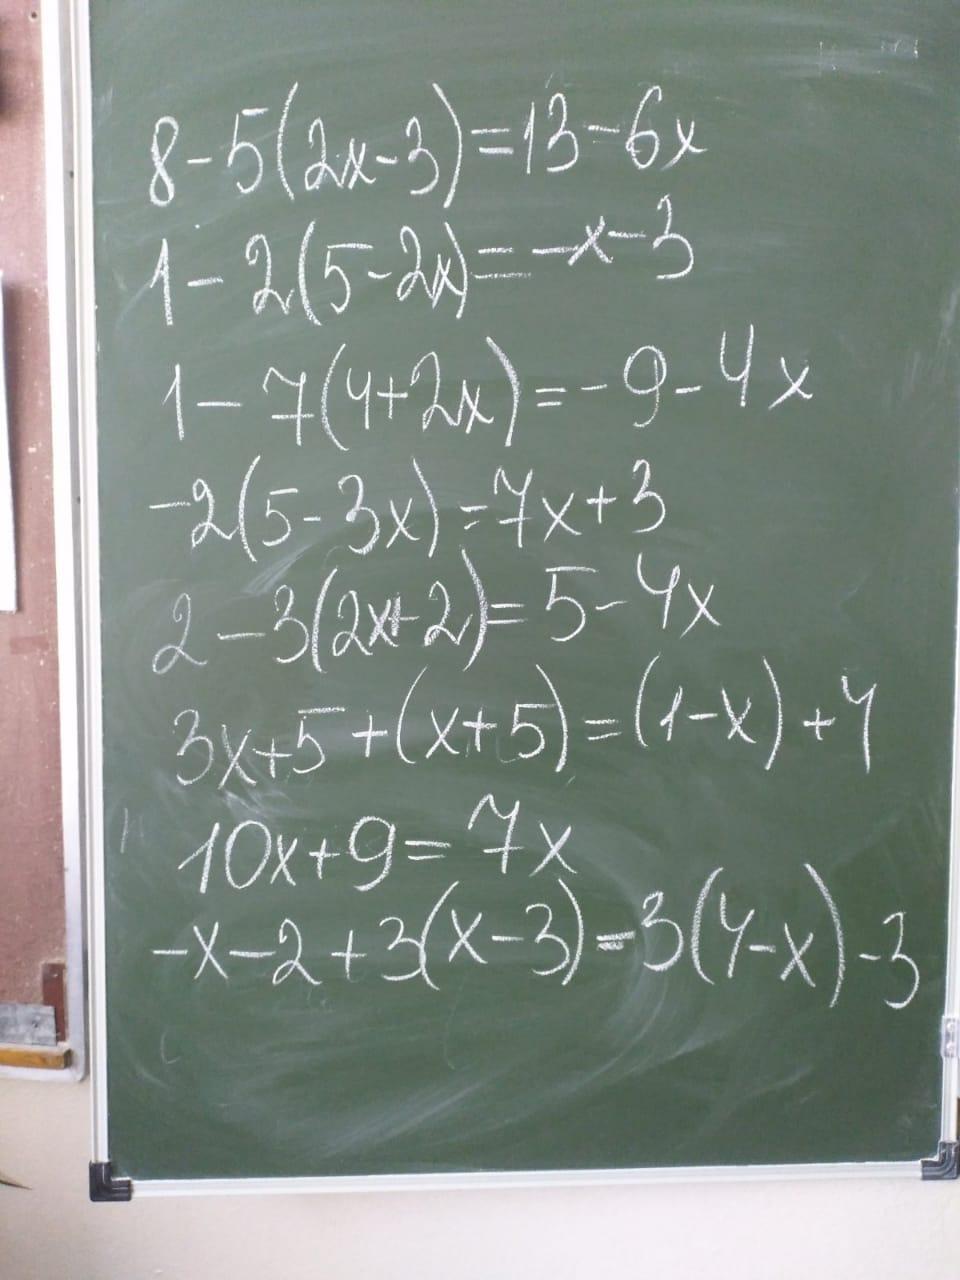 8-5(2x-3)=13-6x
1-2(5-2x)=-x-3
1-7(4+2x)=-9-4x
-2(5-3x)=7x+3
2-3(2x+2)=5-4x
3x+5+(x+5)=(1-x)+4
10x+9=7x
-x-2+3(x-3)=3(4-x)-3